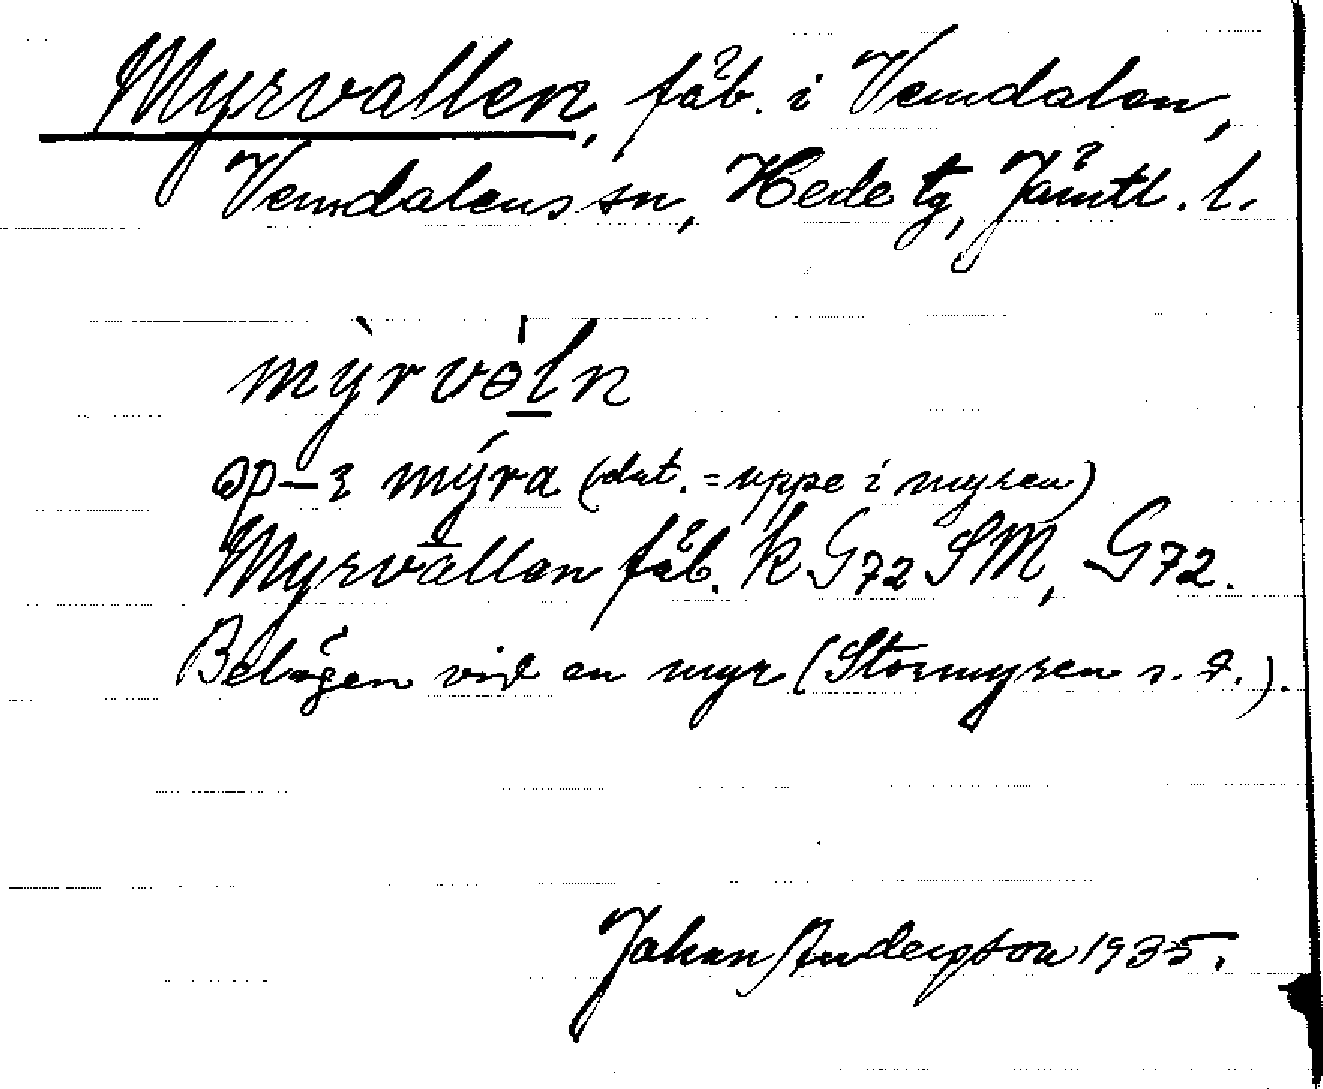 Myrvallen, fäb. i Vemdalen,
Vemdalens sn, Hede tg, Jämtl. l.
mỳrvöln
öp-i mýra (dat. = uppe i myren)
Myrvallen fäb. k G72 SM, G72.
Belägen vid en myr (Stormyren s. d.).
Johan Anderson 1935.